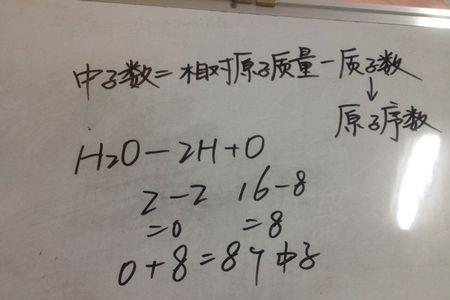 中子数=相对原子质量-质子数
↓
原子序数
H2O-2H+O
2-2 16-8
=0 =8
0+8=8个中子